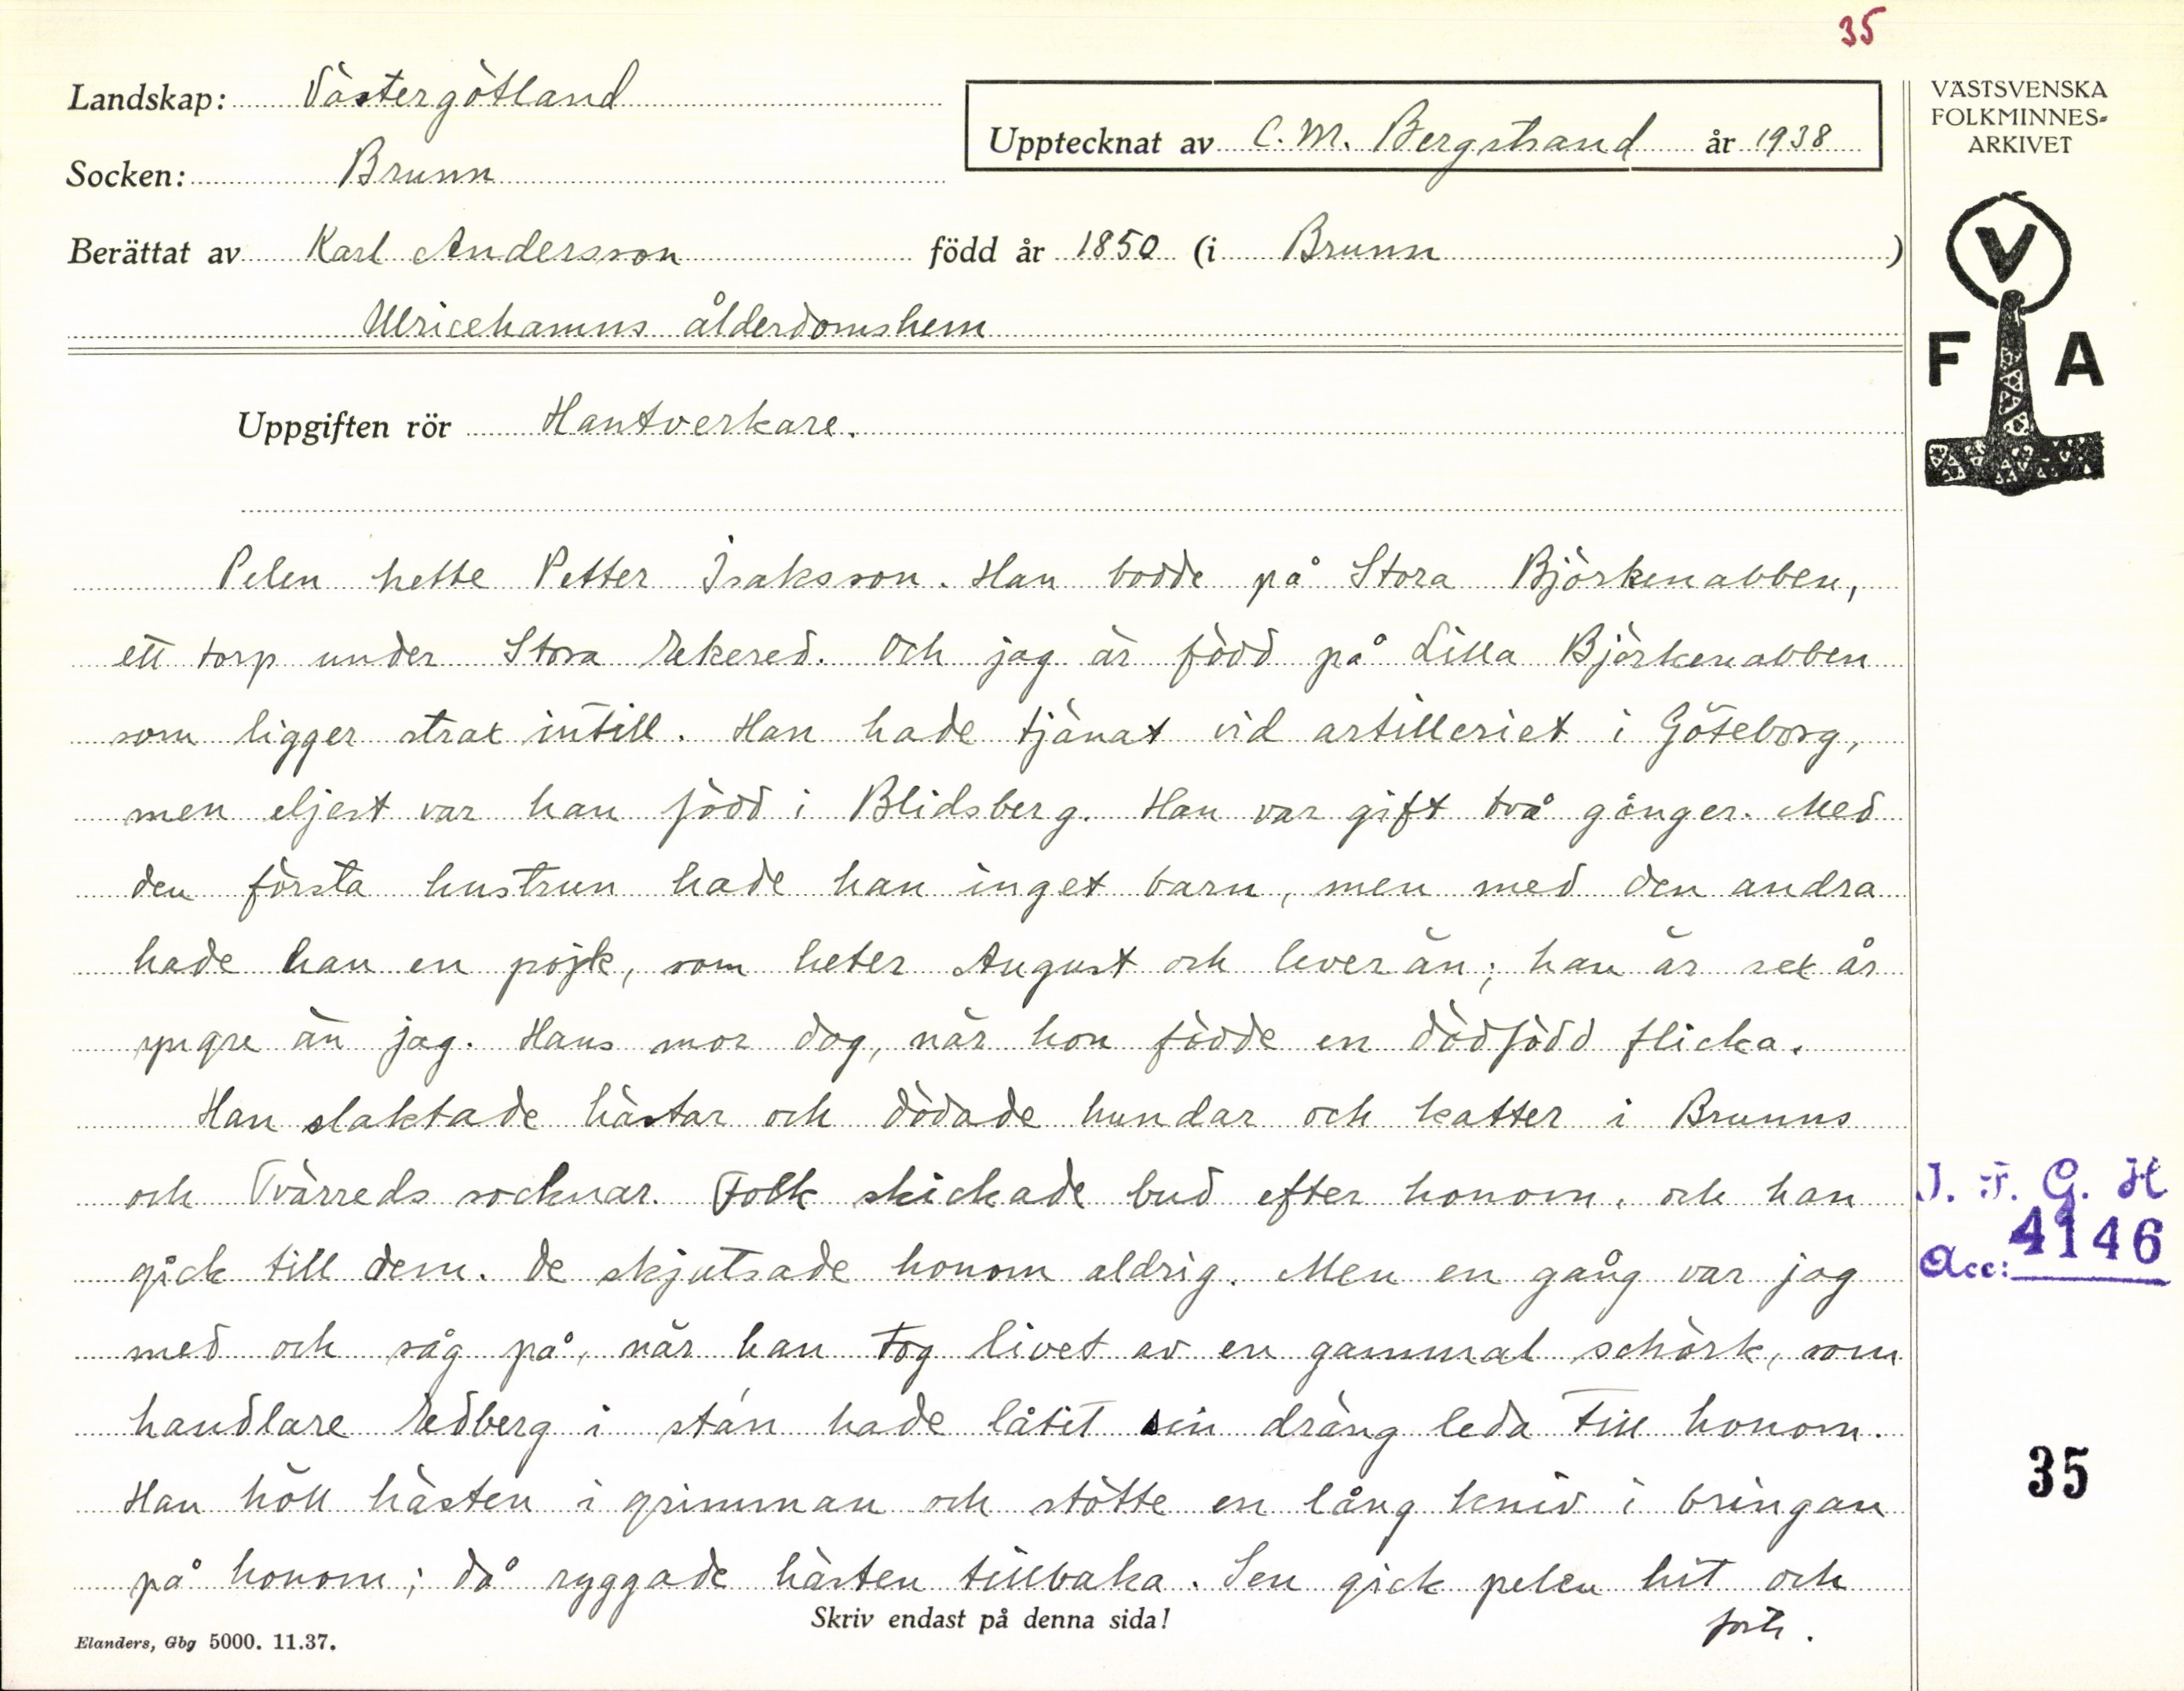 35
Landskap: Västergötland
Socken: Brunn
Upptecknat av C. M. Bergstrand år 1938
Berättat av Karl Andersson född år 1850 (i Brunn)
Ulricehamns ålderdomshem
VÄSTSVENSKA
FOLKMINNES-
ARKIVET
V
F A
Uppgiften rör Hantverkare.
Pelen hette Petter Isaksson. Han bodde på Stora Björkenabben,
ett torp under Stora Ekered. Och jag är född på Lilla Björkenabben
som ligger strax intill. Han hade tjänat vid artilleriet i Göteborg,
men eljest var han född i Blidsberg. Han var gift två gånger. Med
den första hustrun hade han inget barn, men med den andra
hade han en pojk, som heter August och lever än; han är sex år
yngre än jag. Hans mor dog, när hon födde en dödfödd flicka.
Han slaktade hästar och dödade hundar och katter i Brunns
och Tvärreds socknar. Folk skickade bud efter honom, och han
gick till dem. De skjutsade honom aldrig. Men en gång var jag
med och såg på, när han tog livet av en gammal schörk, som
handlare Edberg i stán hade låtit sin dräng leda till honom.
Han höll hästen i grimman och stötte en lång kniv i bringan
på honom; då ryggade hästen tillbaka. Sen gick pelen hit och
forts.
Skriv endast på denna sida!
Elanders, Gbg 5000. 11.37.
I. F. G. H
Acc: 4146
35